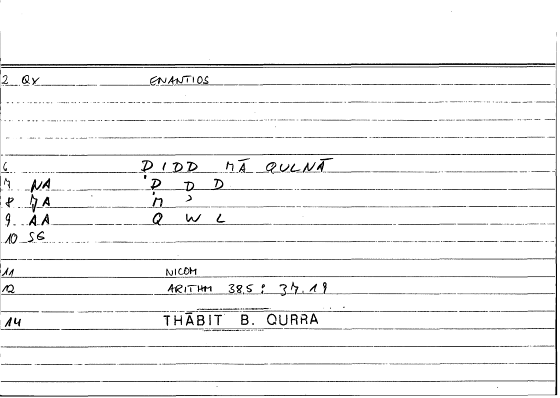 2 QV ENANTIOS
6 DIDD MĀ QULNĀ
7 NA D D D
8 MA M ʾ
9 AA Q W L
10 SG
11 NICOM
12 ARITHM 38.5 : 37.19
14 THĀBIT B. QURRA